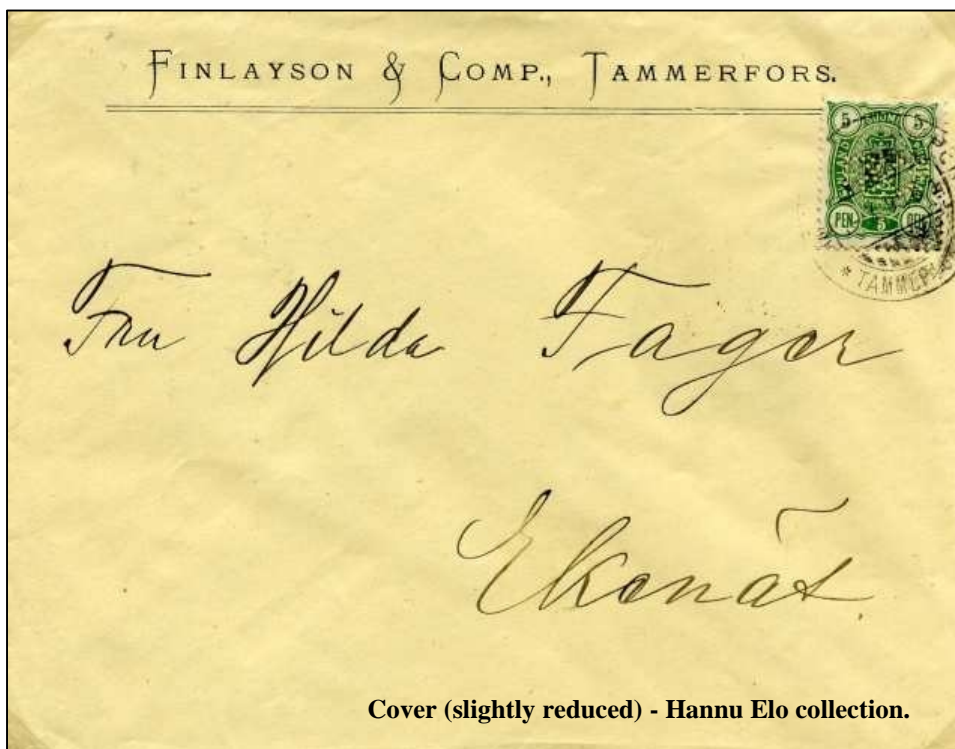 FINLAYSON & COMP., TAMMERFORS.
5 5
PEN 5 PEN
* TAMMER
Fru Hilda Fager
Ekenäs.
Cover (slightly reduced) - Hannu Elo collection.